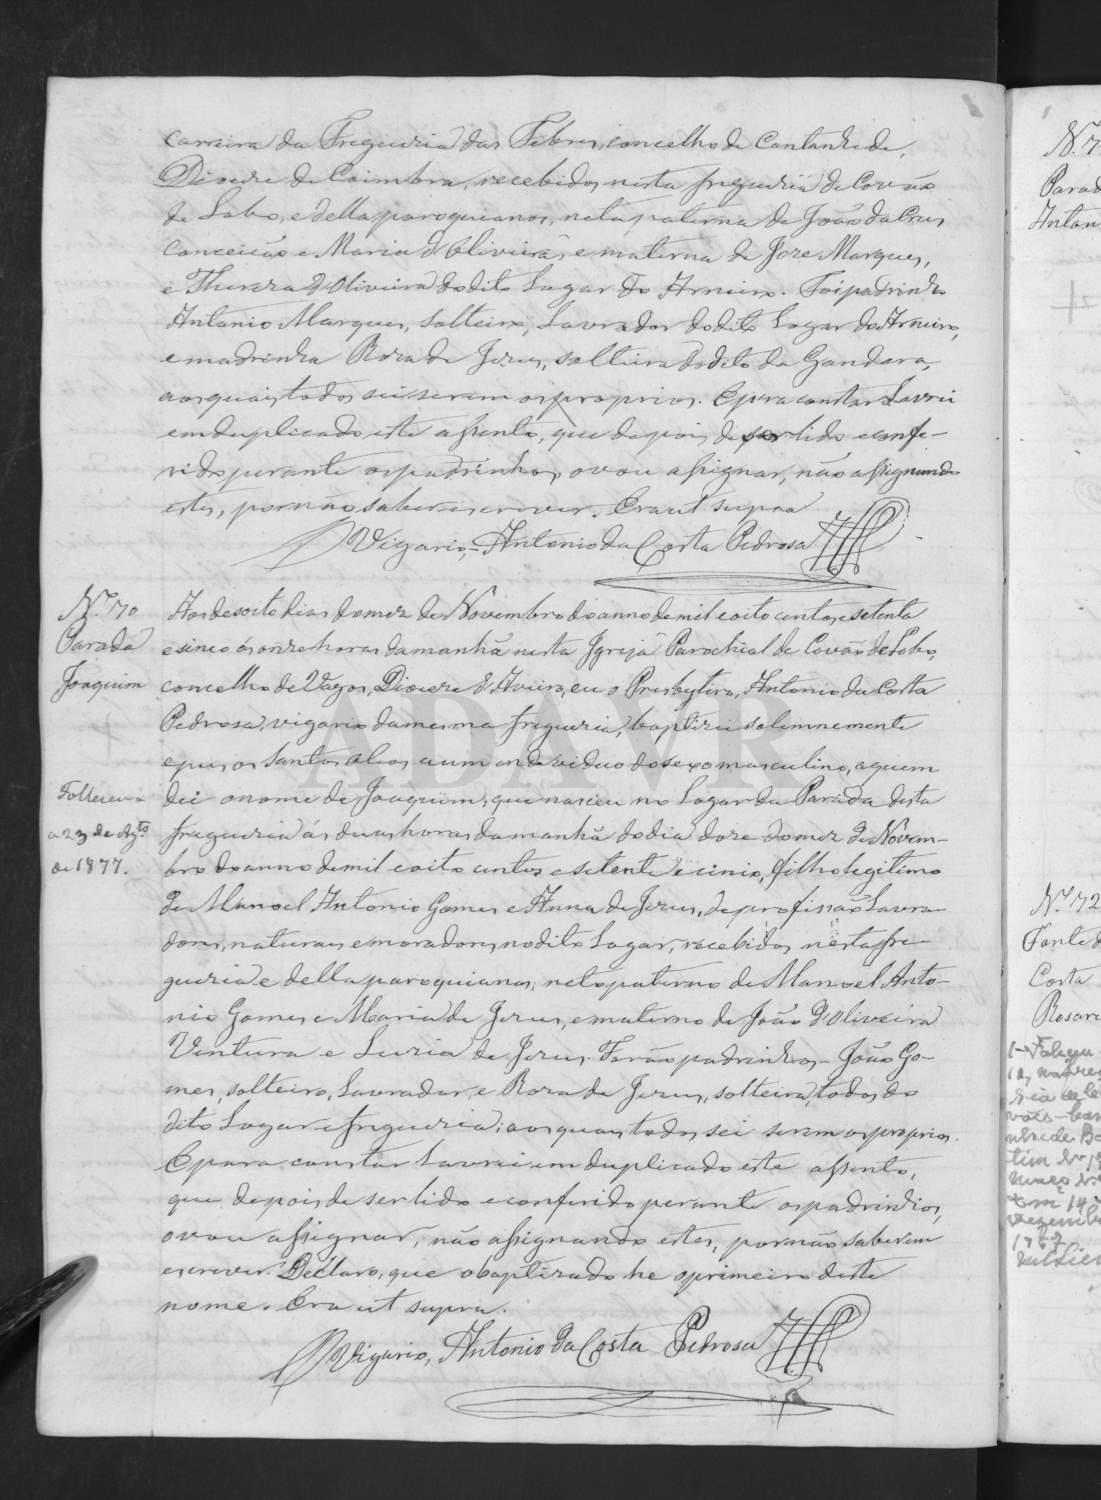 carreira da Freguezia das Febres, concelho de Cantanhede,
Diocere de Coimbra, recebidos nesta freguezia de Covão
de Lobo, e della paroquianos, neta paterna de João da Cruz
Conceição e Maria d'Oliveira, e materna de Jozé Marques,
e Thereza d'Oliveira do dito Lugar do Arneiro. Foi padrinho
Antonio Marques, solteiro, Lavrador do dito Lugar do Arneiro,
e madrinha Roza de Jezus, solteira do dito da Gandara,
aos quais todos sei serem os proprios. E para constar Lavrei
em duplicado este assento, que depois de ser lido e confe-
rido perante os padrinhos, o vou assignar, não assignando
estes, por não saber escrever. Era ut supra
O Vigario, - Antonio da Costa Pedrosa
Nº 70
Parada
Joaquim
Falleceu
a 23 de Agto
de 1877.
Aos desoito dias do mez de Novembro do anno de mil e oito centos e setenta
e sinco ás onze horas da manhã nesta Igreja Parochial de Covão de Lobo,
concelho de Vagos, Diocere d'Aveiro, eu o Presbytero, Antonio da Costa
Pedrosa, vigario da mesma freguezia, baptizei solemnemente
e pus os Santos Oleos a um individuo do sexo masculino, a quem
dei o nome de Joaquim, que nasceu no Lugar da Parada desta
freguezia ás duas horas da manhã do dia doze do mez de Novem-
bro do anno de mil e oito centos e setenta e cinco, filho legitimo
de Manoel Antonio Gomes e Anna de Jezus, de profissão Lavra-
dores, naturaes e moradores no dito Lugar, recebidos nesta fre-
guezia e della paroquianos, neto paterno de Manoel Anto-
nio Gomes e Maria de Jezus, e materno de João d'Oliveira
Ventura e Luzia de Jezus. Forão padrinhos - João Go-
mes, solteiro, Lavrador, e Roza de Jezus, solteira, todos do
dito Lugar e freguezia; aos quaes todos sei serem os proprios.
E para constar Lavrei em duplicado este assento,
que depois de ser lido e conferido perante os padrinhos,
o vou assignar, não assignando estes, por não saberem
escrever. Declaro, que o baptizado he o primeiro deste
nome. Era ut supra.
O Vigario, Antonio da Costa Pedrosa
ADAVR
Nº 7
Parad
Anton
Nº 72
Fonte d
Costa
Rosari